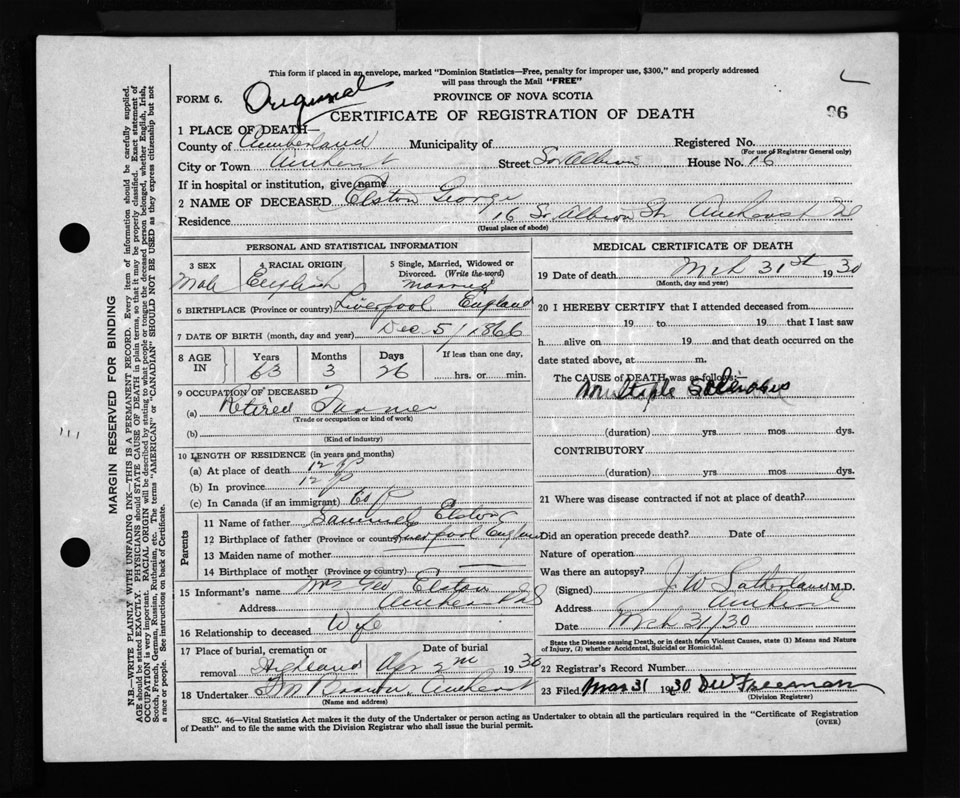 This form if placed in an envelope, marked "Dominion Statistics—Free, penalty for improper use, $300," and properly addressed
will pass through the Mail "FREE"
FORM 6. Original PROVINCE OF NOVA SCOTIA
CERTIFICATE OF REGISTRATION OF DEATH 96
1 PLACE OF DEATH—
County of Cumberland Municipality of Registered No.
(For use of Registrar General only)
City or Town Amherst Street So Albion House No. 16
If in hospital or institution, give name
2 NAME OF DECEASED Elston George
Residence 16 So Albion St. Amherst
(Usual place of abode)
PERSONAL AND STATISTICAL INFORMATION
3 SEX 4 RACIAL ORIGIN 5 Single, Married, Widowed or Divorced. (Write the word)
Male English Married
6 BIRTHPLACE (Province or country) Liverpool England
7 DATE OF BIRTH (month, day and year) Dec 5/1866
8 AGE IN Years Months Days If less than one day,
63 3 26 hrs. or min.
9 OCCUPATION OF DECEASED
(a) Retired Farmer
(Trade or occupation or kind of work)
(b)
(Kind of industry)
10 LENGTH OF RESIDENCE (in years and months)
(a) At place of death 12
(b) In province 12
(c) In Canada (if an immigrant)
Parents
11 Name of father Samuel Elston
12 Birthplace of father (Province or country) Liverpool England
13 Maiden name of mother —
14 Birthplace of mother (Province or country) —
15 Informant's name Mrs Geo Elston
Address Amherst NS
16 Relationship to deceased Wife
17 Place of burial, cremation or removal Highland Date of burial Apr 2nd 1930
18 Undertaker Brown, Amherst
(Name and address)
MEDICAL CERTIFICATE OF DEATH
19 Date of death Mch 31st 1930
(Month, day and year)
20 I HEREBY CERTIFY that I attended deceased from
19 to 19 that I last saw
h alive on 19 and that death occurred on the
date stated above, at m.
The CAUSE OF DEATH was as follows:—
Multiple Sclerosis
(duration) yrs. mos. dys.
CONTRIBUTORY
(duration) yrs. mos. dys.
21 Where was disease contracted if not at place of death?
Did an operation precede death? Date of
Nature of operation
Was there an autopsy?
(Signed) J. W. Sutherland M.D.
Address Amherst
Date Mch 31/30
State the Disease causing Death, or in death from Violent Causes, state (1) Means and Nature
of Injury, (2) whether Accidental, Suicidal or Homicidal.
22 Registrar's Record Number
23 Filed Mar 31 1930 DW Freeman
(Division Registrar)
SEC. 46—Vital Statistics Act makes it the duty of the Undertaker or person acting as Undertaker to obtain all the particulars required in the "Certificate of Registration
of Death" and to file the same with the Division Registrar who shall issue the burial permit. (OVER)
MARGIN RESERVED FOR BINDING
N.B.—WRITE PLAINLY WITH UNFADING INK—THIS IS A PERMANENT RECORD. Every item of information should be carefully supplied.
AGE should be stated EXACTLY. PHYSICIANS should STATE CAUSE OF DEATH in plain terms, so that it may be properly classified. Exact statement of
OCCUPATION is very important. RACIAL ORIGIN will be described by stating to what people or tongue the deceased person belonged, whether English, Irish,
Scotch, French, German, Russian, Ruthenian, etc. The terms "AMERICAN" or "CANADIAN" SHOULD NOT BE USED as they express citizenship but not
a race or people. See instructions on back of Certificate.